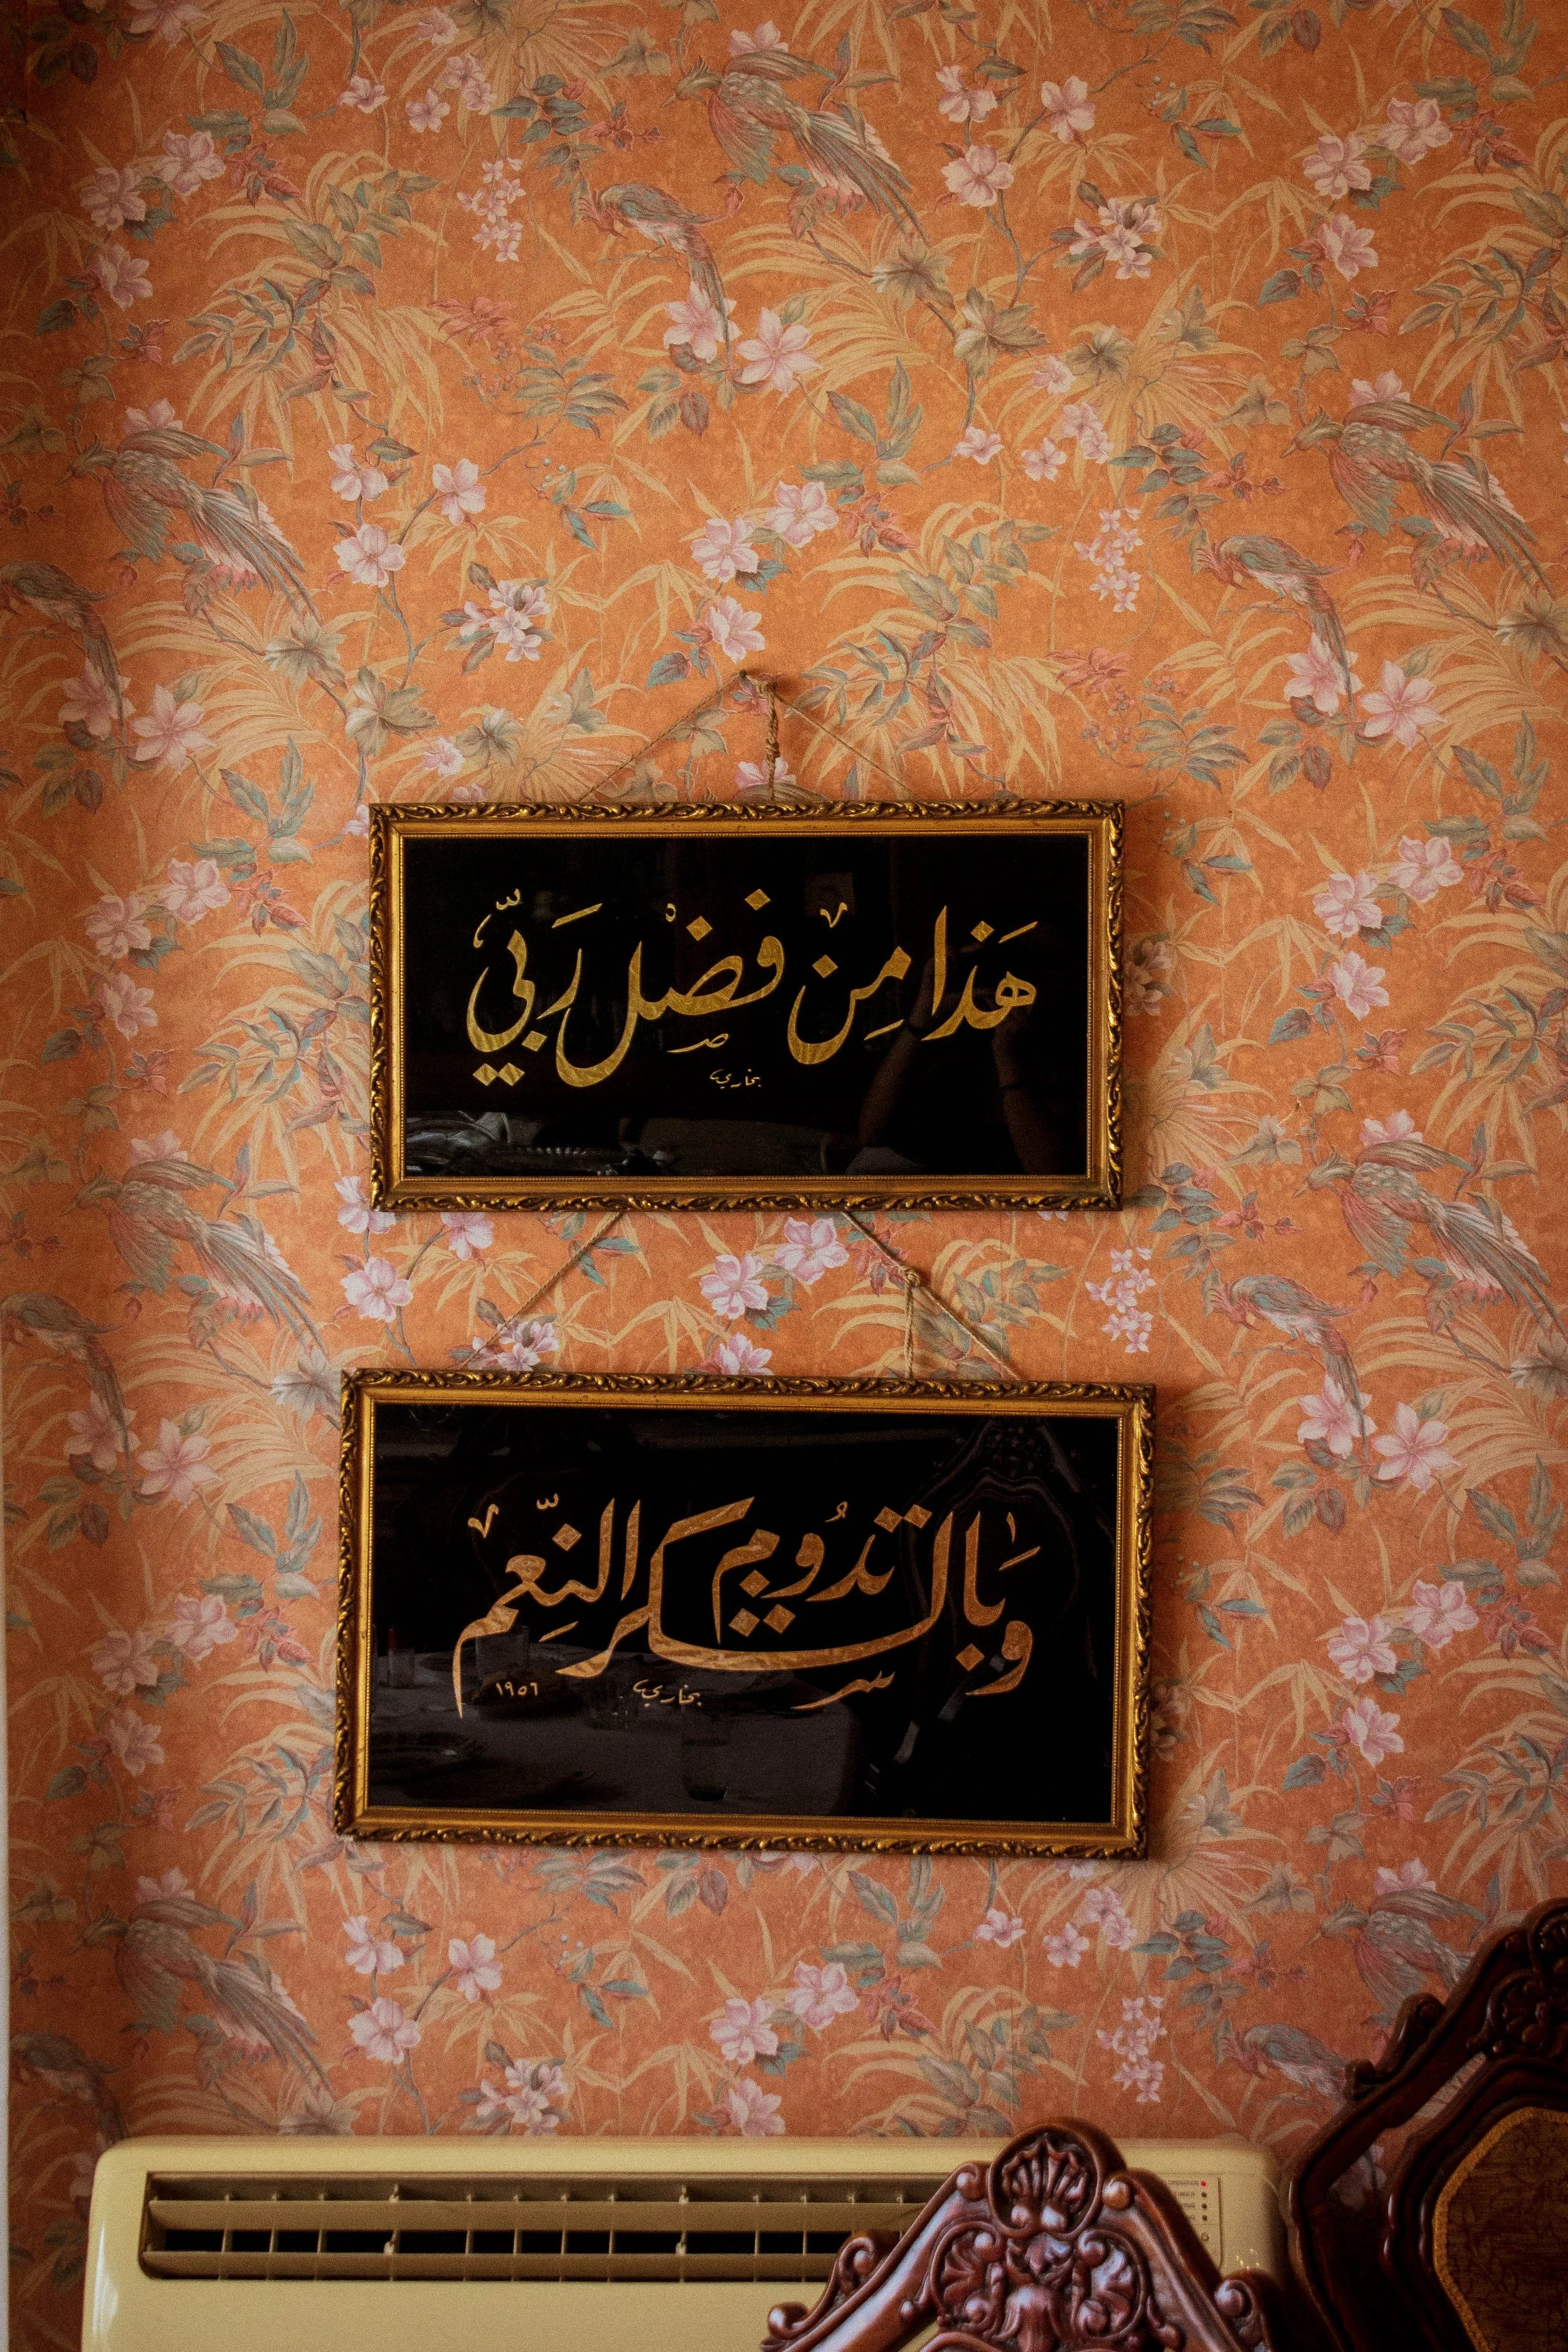 هَذَا مِنْ فَضْل رَبّي
بخاري
وَبالشكر تدُوم النِّعَم
بخاري
١٩٥٦